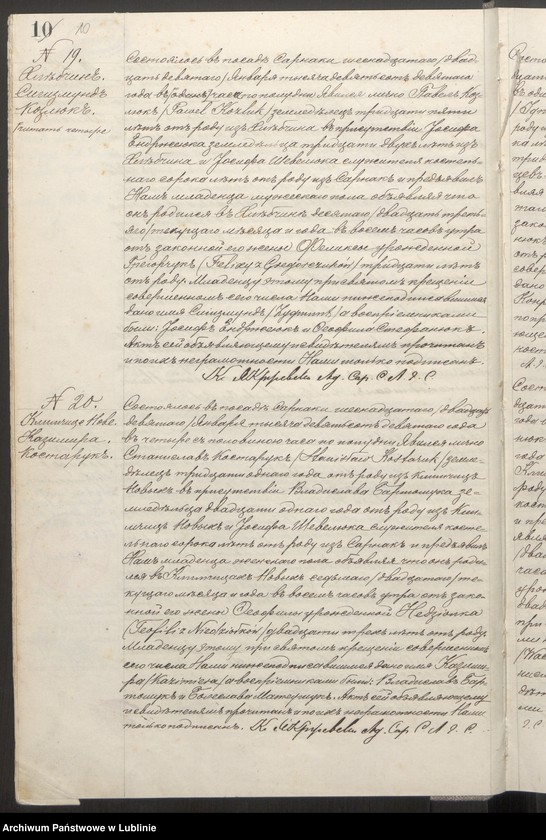 10 10
№ 19.
Хлѣбчинъ.
Сигизмундъ
Козлюкъ.
Состоялось въ посадѣ Сарнаки шестнадцатаго /двад
цать девятаго/ Января тысяча девятьсотъ девятаго
года въ часъ по полудни. Явился лично Павелъ Коз
люкъ /Paweł Kozluk/ земледѣлецъ тридцати пяти
лѣтъ отъ роду изъ Хлѣбчина въ присутствіи Іосифа
Ендрусюка земледѣльца тридцати двухъ лѣтъ изъ
Хлѣбчина и Іосифа Шевелюка служителя костель
наго сорока лѣтъ отъ роду изъ Сарнакъ и предъявилъ
Намъ младенца мужескаго пола объявляя что
онъ родился въ Хлѣбчинѣ десятаго /двадцать треть
яго/ текущаго мѣсяца и года въ восемь часовъ утра
отъ законной его жены Феликсы урожденной
Грегорчукъ /тридцати лѣтъ
отъ роду. Младенцу этому при святомъ крещеніи
совершенномъ сего числа Нами нижеподписавшимся
дано имя Сигизмундъ /Zygmunt/ а воспріемниками
были: Іосифъ Ендрусюкъ и Теофила Стефанюкъ.
Актъ сей объявляющему и свидѣтелямъ прочитанъ
и по ихъ неграмотности Нами только подписанъ.
№ 20.
Климчице Нове.
Казимира.
Костарукъ.
Состоялось въ посадѣ Сарнаки шестнадцатаго /двадцать
девятаго/ Января тысяча девятьсотъ девятаго года
въ четыре съ половиною часа по полудни. Явился лично
Станиславъ Костарукъ /Stanisław Kostaruk/ земле-
дѣлецъ тридцати одного года отъ роду изъ Климчицъ
Новыхъ въ присутствіи Владислава Бартошука зе-
мледѣльца двадцати одного года отъ роду изъ Кли-
мчицъ Новыхъ и Іосифа Шевелюка служителя косте-
льнаго сорока лѣтъ отъ роду изъ Сарнакъ и предъявилъ
Намъ младенца женскаго пола объявляя что онъ роди-
лся въ Климчицахъ Новыхъ седьмаго /двадцатаго/ те-
кущаго мѣсяца и года въ восемь часовъ утра отъ зако-
нной его жены Теофили урожденной Недзюлка
/Teofili z Niedziółków/ двадцати трехъ лѣтъ отъ роду.
Младенцу этому при святомъ крещеніи совершенномъ
сего числа Нами нижеподписавшимся дано имя Казими-
ра /Kazimiera/ а воспріемниками были: Владиславъ Бар-
тошукъ и Болеслава Матеушукъ. Актъ сей объявляющему
и свидѣтелямъ прочитанъ и по ихъ неграмотности Нами
только подписанъ.
Archiwum Państwowe w Lublinie